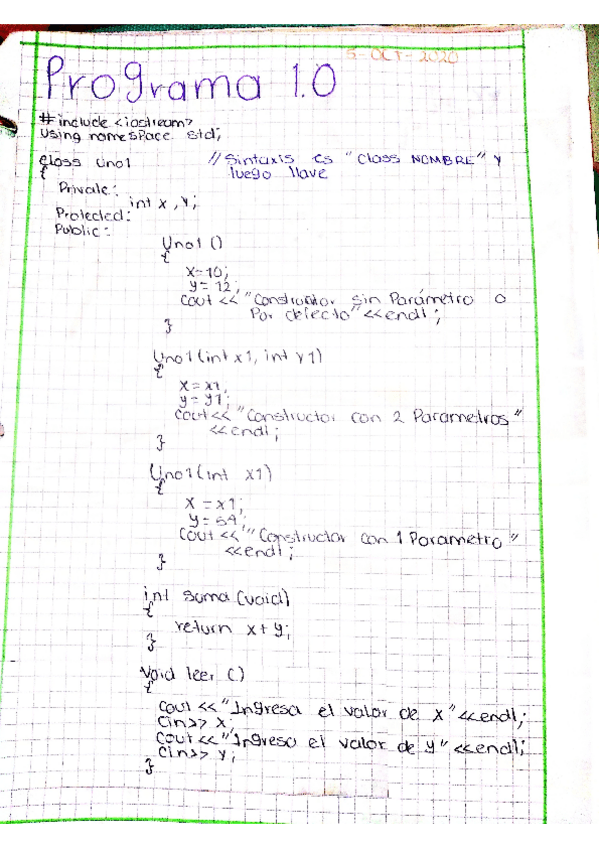 5-OCT-2020
Programa 1.0
#include <iostream>
using namespace std;
class Uno1 // Sintaxis es "Class NOMBRE" y
{ luego llave
Private:
int x, y;
Protected:
Public:
Uno1 ()
{
x=10;
y=12;
cout << "Constructor sin Parámetro o
Por defecto" <<endl;
}
Uno1 (int x1, int y1)
{
x=x1;
y=y1;
cout<< "Constructor con 2 Parametros"
<<endl;
}
Uno1 (int x1)
{
x = x1;
y=54;
cout << "Constructor con 1 Parametro"
<<endl;
}
int suma (void)
{
return x+y;
}
Void leer ()
{
cout << "Ingresa el valor de x" <<endl;
cin>> x;
cout << "Ingresa el valor de y" <<endl;
cin>> y;
}